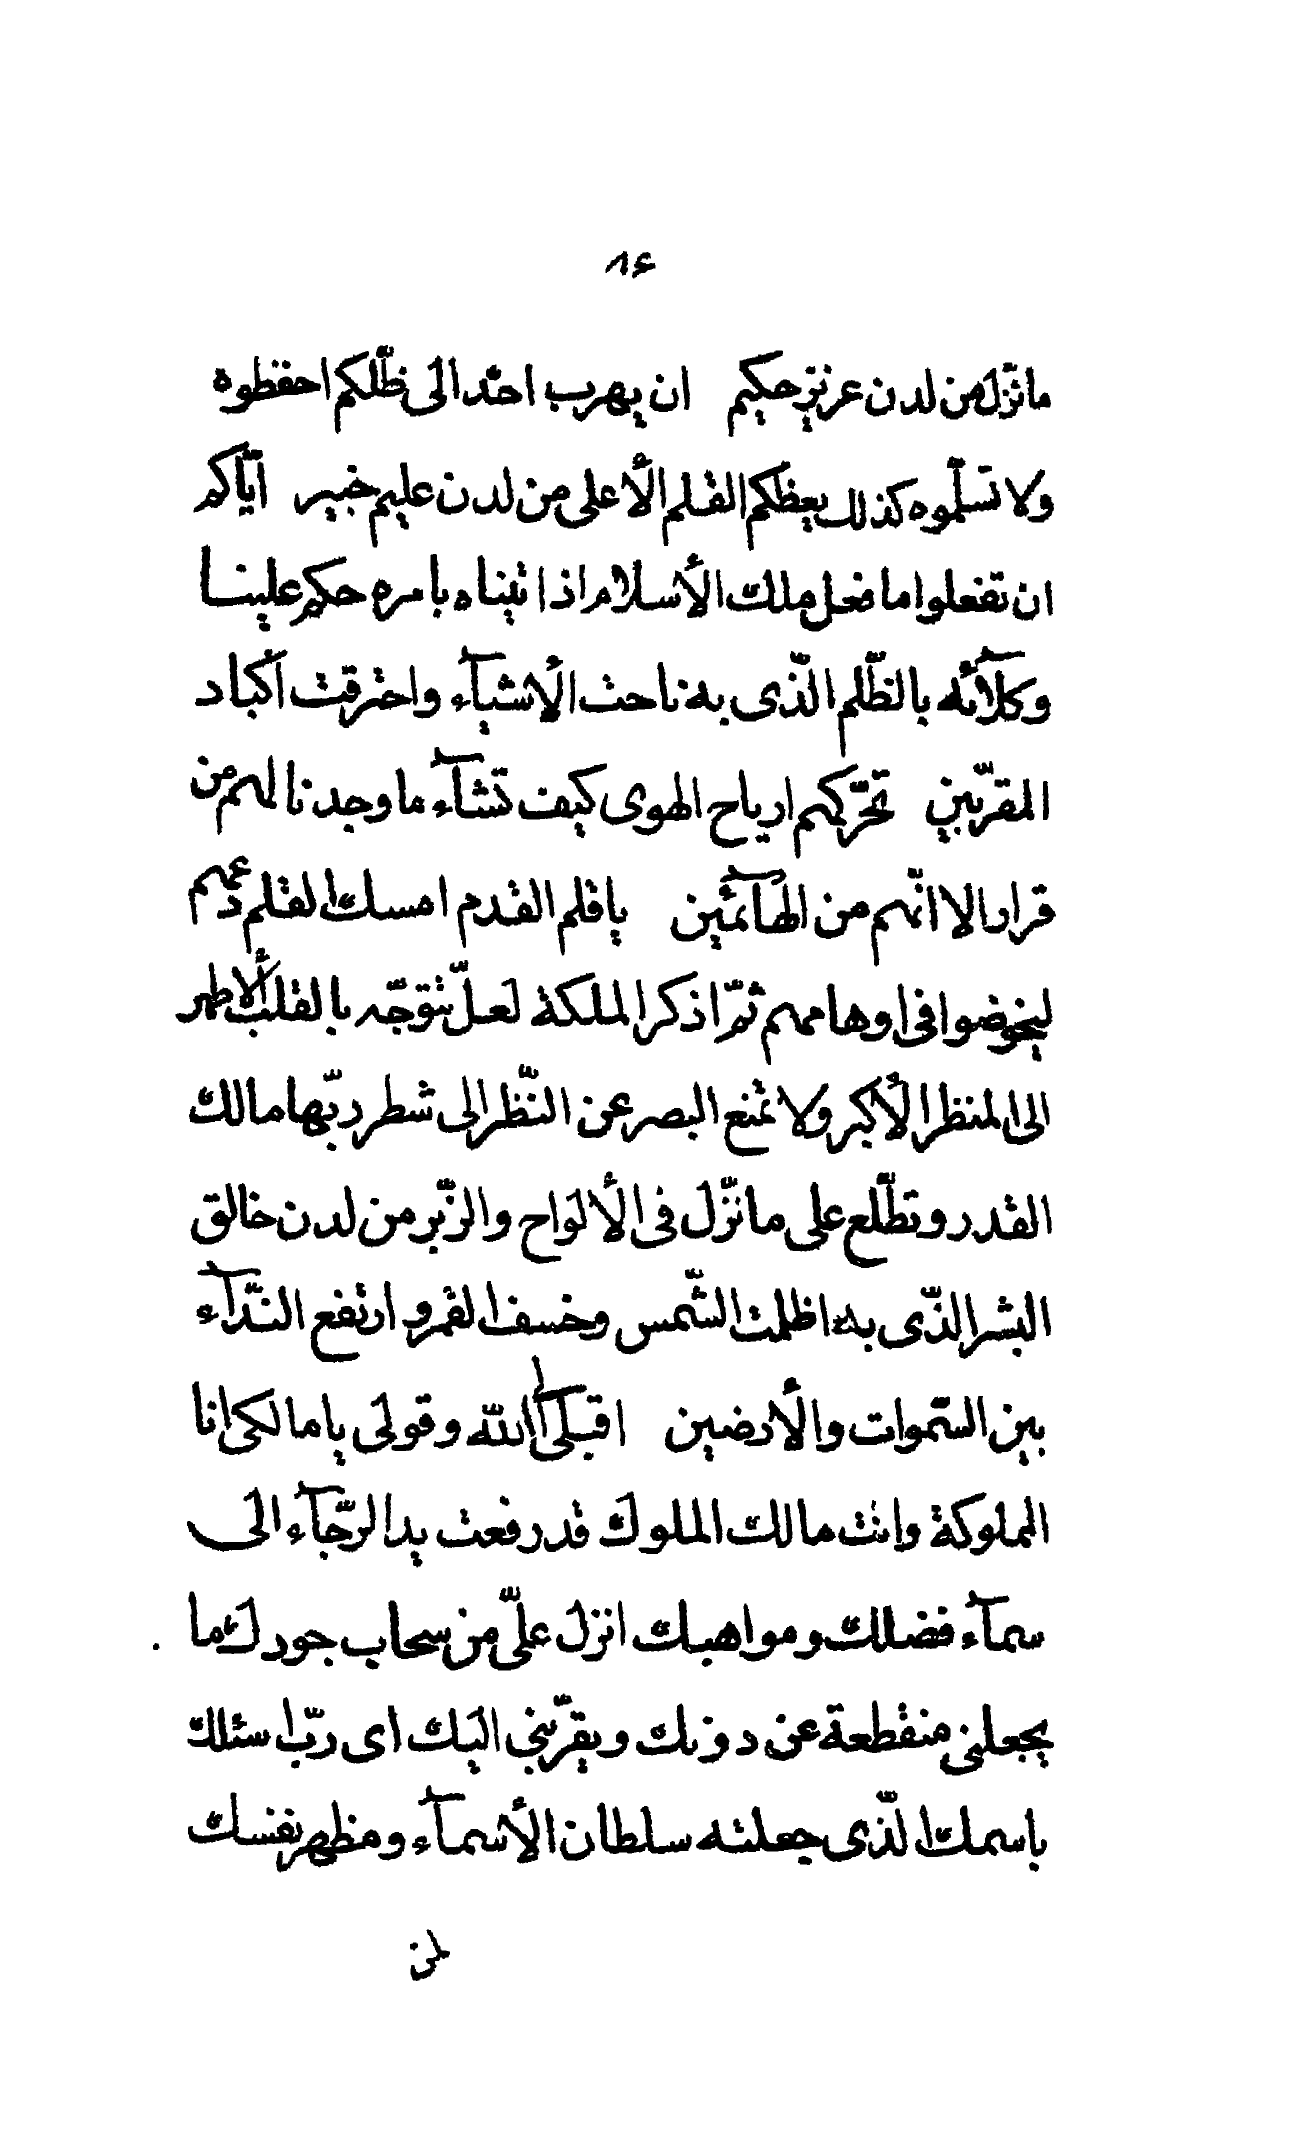 ۸۴
ما نزّل من لدن عزيز حكيم ان يهرب احد الى ظلّكم احفظوه
ولا تسلّموه كذلك يعظكم القلم الأعلى من لدن عليم خبير ايّاكم
ان تفعلوا ما فعل ملك الأسلام اذا اتيناه بامره حكم علينا
وكلآئه بالظّلم الّذى به ناحت الأشيآء واحترقت اكباد
المقرّبين تحرّكهم ارياح الهوى كيف تشآء ما وجدنا لهم من
قرار الا انّهم من الهآئمين يا قلم القدم امسك القلم دعهم
ليخوضوا فى اوهامهم ثمّ اذكر الملكة لعلّ تتوجّه بالقلب الأطهر
الى المنظر الأكبر ولا تمنع البصر عن النّظر الى شطر ربّها مالك
القدر وتطّلع على ما نزّل فى الألواح والزّبر من لدن خالق
البشر الّذى به اظلمت الشّمس وخسف القمر و ارتفع النّدآء
بين السّموات والأرضين اقبلى الى الله وقولى يا مالكى انا
المملوكة وانت مالك الملوك قد رفعت يد الرّجآء الى
سمآء فضلك ومواهبك انزل علىّ من سحاب جودك ما
يجعلنى منقطعة عن دونك ويقرّبنى اليك اى ربّ اسئلك
باسمك الّذى جعلته سلطان الأسمآء ومظهر نفسك
لمن